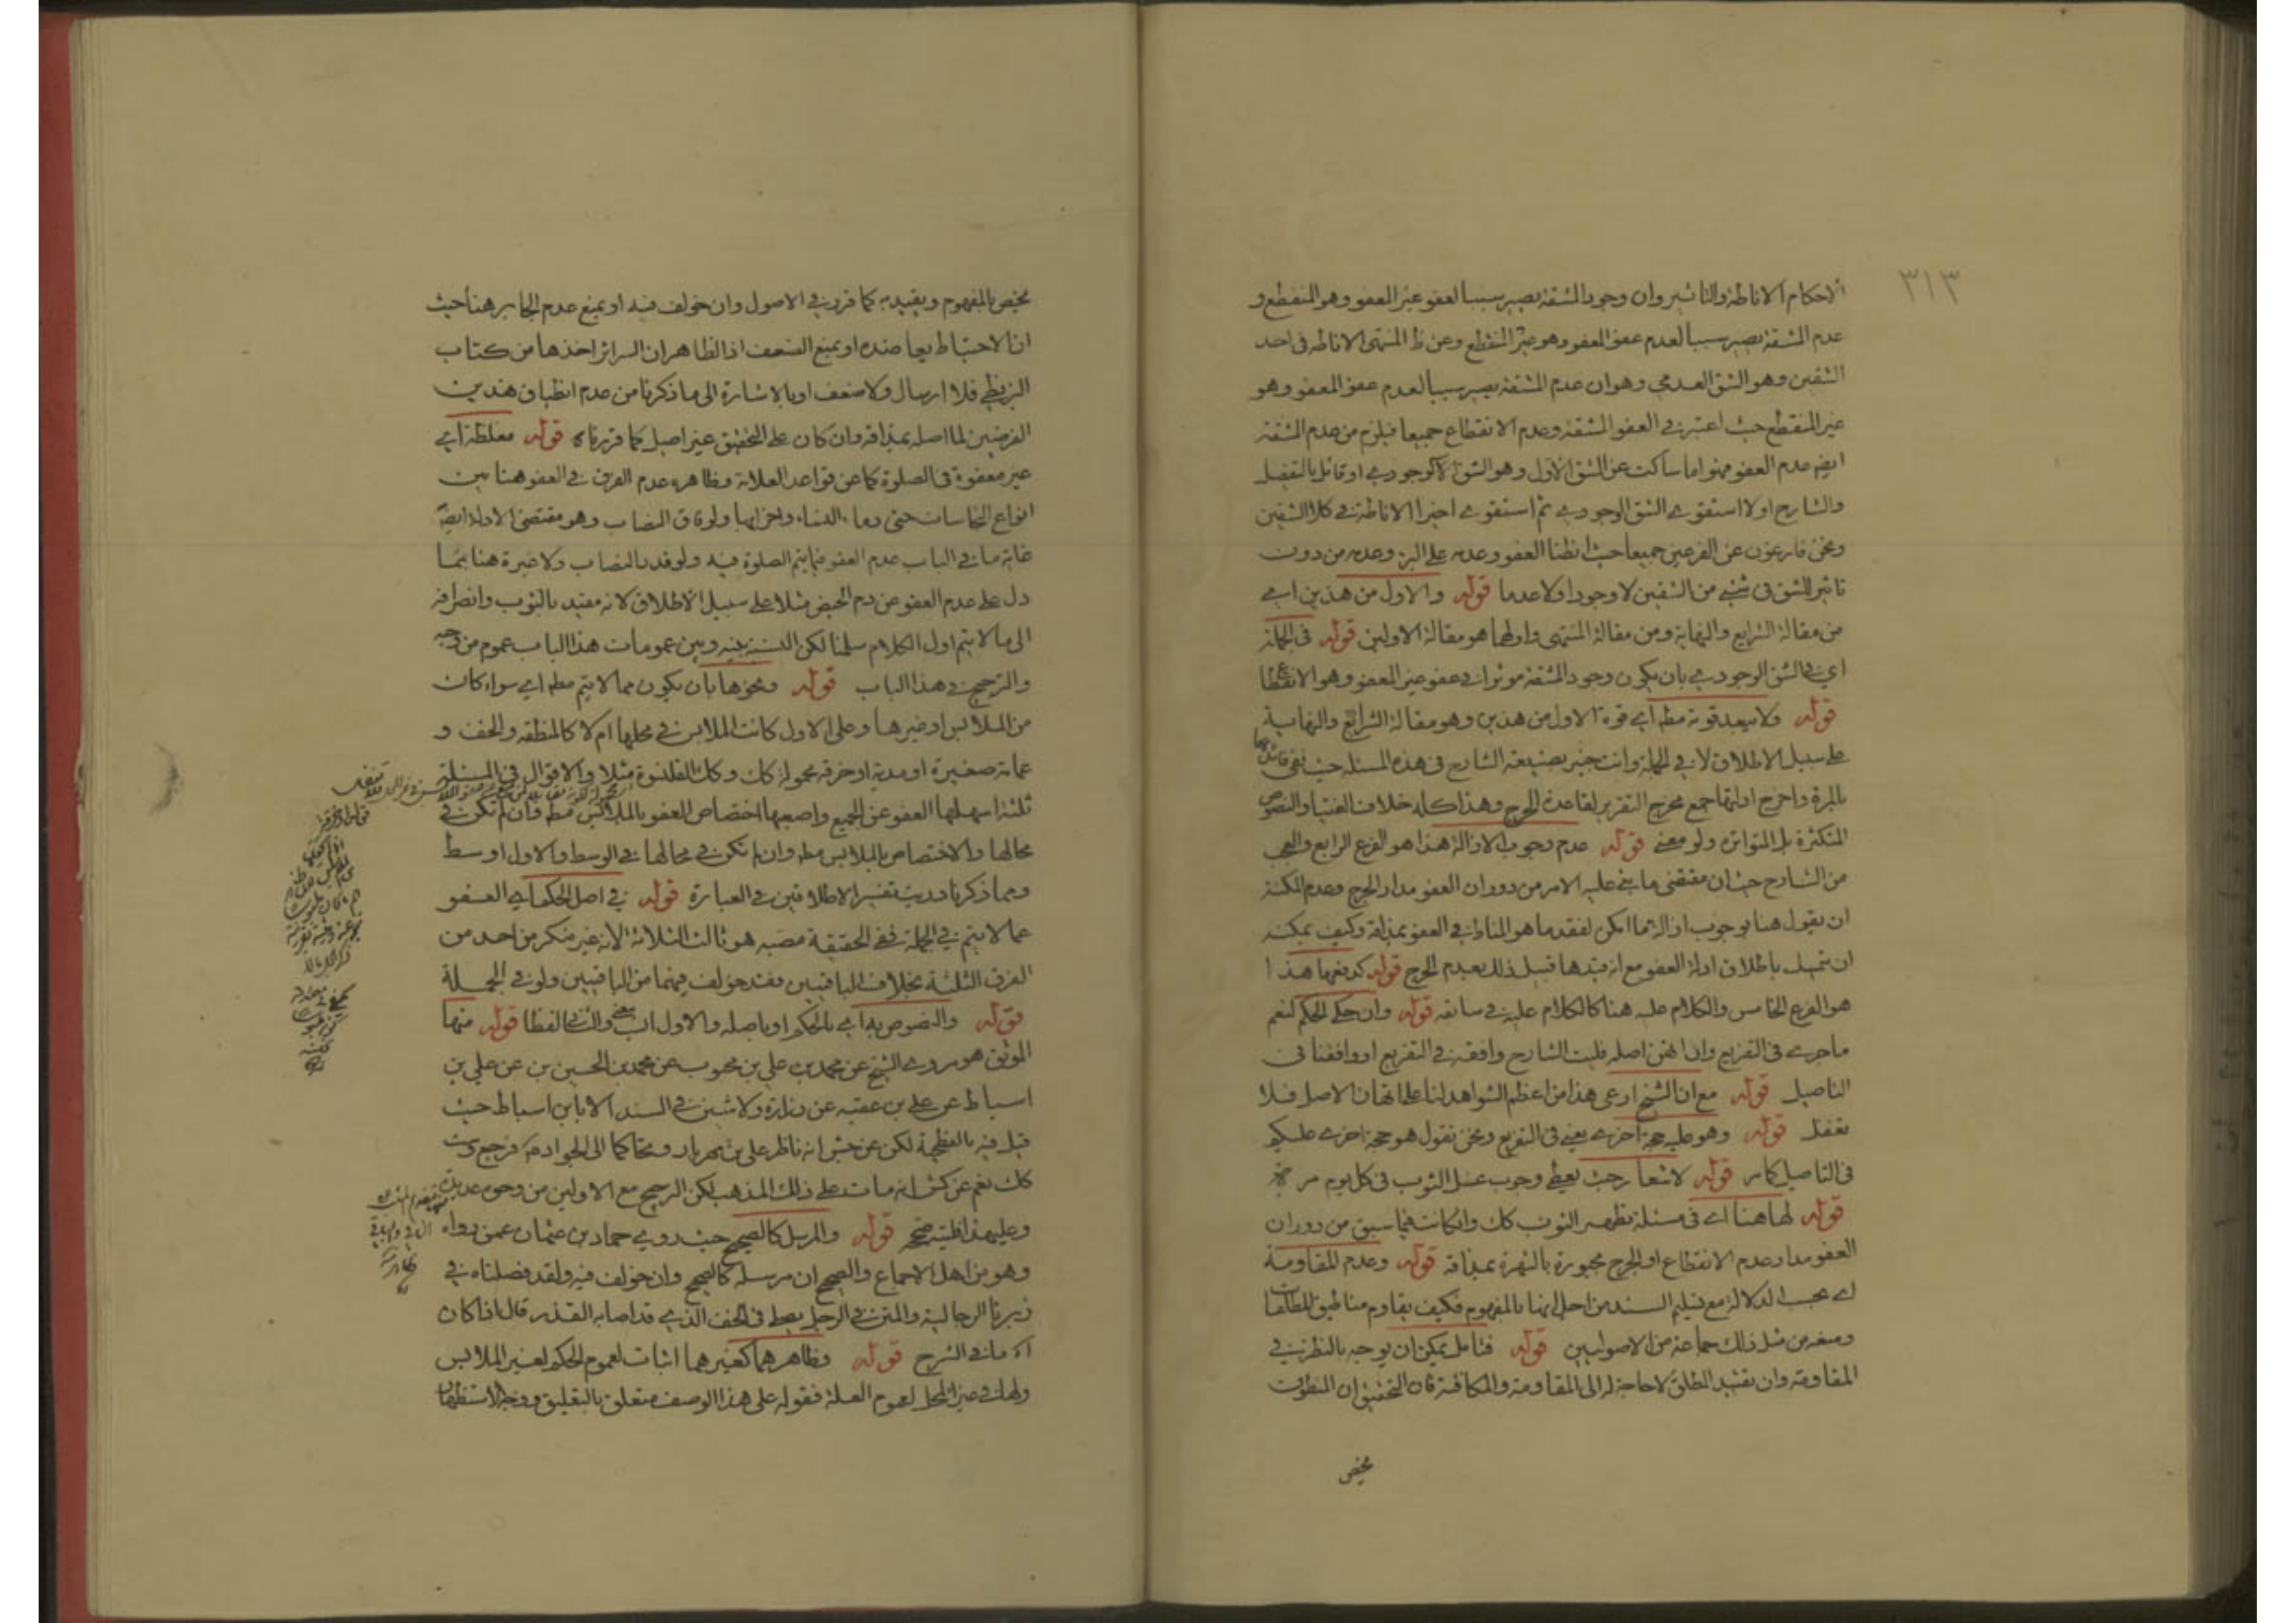 ٣١٣
الاحكام الاناطة والتاثير وان وجود المشقة يصير سببا لعفو غير العفو وهو المنقطع و
عدم المشقة يصير سببا لعدم عفو المعفو وهو غير المنقطع وعن ظ المنتهى الاناطة فى احد
الشقين وهو الشق العدمي وهو ان عدم المشقة يصير سببا لعدم عفو المعفو وهو
غير المنقطع حيث اعتبر في العفو المشقة وعدم الانقطاع جميعا فيلزم من عدم المشقة
ايضه عدم العفو فهو اما ساكت عن الشق الاول وهو الشق الوجودي او قائل بالتفصيل
والشارح اولا استقوى الشق الوجودي ثم استقوى اخيرا الاناطة في كلا الشقين
ونحن فارغون عن الفرعين جميعا حيث انطنا العفو وعدمه على البرء وعدمه من دون
تاثير للشق فى شيء من الشقين لا وجودا ولا عدما قوله والاول من هذين اي
من مقالة الشرايع والنهاية ومن مقالة المنتهى واولهما هو مقالة الاولين قوله فى الجملة
اي في الشق الوجودي بان يكون وجود المشقة موثرا في عفو غير المعفو وهو الانقطاع
قوله ولا يبعد قوته مطه اي قوة الاول من هذين وهو مقالة الشرايع والنهاية
على سبيل الاطلاق لا في الجملة وانت خبير بصنيعة الشارح فى هذه المسئلة حيث نفى
بالمرة واخرج ادلتها جمع مخرج التقرير لقاعدة الحرج وهذا كله خلاف الفتيا والنصوص
المتكثرة بل المتواترة ولو معنى قوله عدم وجوب الازالة هذا هو الفرع الرابع والعجب
من الشارح حيث ان مقتضى ما بنى عليه الامر من دوران العفو مدار الحرج وعدم المكنة
ان يقول هنا بوجوب ازالة ما امكن لفقد ما هو المناط في العفو بمذاقه وكيف يمكنه
ان يتمسك باطلاق ادلة العفو مع انه قيدها قبل ذلك بعدم الحرج قوله هذا
هو الفرع الخامس والكلام عليه هنا كالكلام عليه في سابقه قوله وان حكى الحكم لنعم
ماجرى فى التفريع وان اتقن اصله فليت الشارح وافقه في التفريع او وافقنا فى
التاصيل قوله مع ان الشيخ ادعى هذا من اعظم الشواهد لنا على اتقان الاصل فلا
تغفل قوله وهو عليه حجة اخرى يعني فى التفريع ونحن نقول هو حجة اخرى عليكم
فى التاصيل كما مر قوله لاشعار حيث يعطى وجوب غسل الثوب فى كل يوم مرة
قوله لها هنا اى فى مسئلة تطهير الثوب كك وان كانت فيما سبق من دوران
العفو مدار عدم الانقطاع او الحرج مجبورة بالشهرة بمذاقه قوله وعدم المقاومة
اى بحسب الدلالة مع تسليم السند من اجل انها بالمفهوم فكيف يقاوم مناطيق المطلقات
ومنعه من مثل ذلك جماعة من الاصوليين قوله فتامل يمكن ان يوجه بالنظر في
المقاومة وان تقييد المطلق لا حاجة له الى المقاومة والمكافئة فان التحقيق ان المنطوق
يخص
يخص بالمفهوم ويقيد به كما قرر في الاصول وان خولف فيه او بمنع عدم الجابر هنا حيث
ان الاحتياط يعاضده او بمنع الضعف اذ الظاهر ان السرائر اخذها من كتاب
البزنطي فلا ارسال ولا ضعف او بالاشارة الى ما ذكرنا من عدم انطباق هذين
الفرعين لما اصله بمذاقه وان كان على التحقيق غير اصيل كما قررناه قوله مغلظة اي
غير معفوة فى الصلوة كما عن قواعد العلامة وظاهره عدم الفرق في العفو هنا بين
انواع النجاسات حتى دماء النساء واخواتها ولو فاق النصاب وهو مقتضى الادلة ايضه
غاية ما في الباب عدم العفو فيما يتم الصلوة فيه ولو فقد النصاب ولا عبرة هنا بما
دل على عدم العفو عن دم الحيض مثلا على سبيل الاطلاق لانه مقيد بالثوب وانصرافه
الى ما لا يتم اول الكلام سلمنا لكن النسبة بينه وبين عمومات هذا الباب عموم من وجه
والترجيح في هذا الباب قوله ونحوها بان يكون مما لا يتم مطه اي سواء كان
من الملابس او غيرها وعلى الاول كانت الملابس في محلها ام لا كالمنطقة والخف و
عمامة صغيرة او مدية او خرقة محمولة كك وكك القلنسوة مثلا والاقوال في المسئلة
ثلثة اسهلها العفو عن الجميع واصعبها اختصاص العفو بالملابس مطه وان لم تكن في
محالها والاختصاص بالملابس مطه وان لم تكن في محالها في الوسط والاول اوسط
ومما ذكرنا دريت تفسير الاطلاقين في العبارة قوله في اصل الحكم اي العفو
عما لا يتم في الجملة ففي الحقيقة مصبه هو ثالث الثلاثة لانه غير منكر من احد من
الفرق الثلثة بخلاف الباقيين فقد خولف فيهما من الباقيين ولو في الجملة
قوله والنصوص به اي بالحكم او باصله والاول انسب معنى والثاني لفظا قوله منها
الموثق هو مروي الشيخ عن محمد بن علي بن محبوب عن محمد بن الحسين بن عن علي بن
اسباط عن علي بن عقبه عن زرارة ولا شين في السند الا بابن اسباط حيث
قيل فيه بالفطحية لكن عن جش انه ناظر علي بن مهزيار وتحاكما الى الجواد م فرجع
كك نعم عن كش انه مات على ذلك المذهب لكن الترجيح مع الاولين من وجوه عديدة
وعليهذا قوله والمرسل كالصحيح حيث روي حماد بن عثمان عمن رواه
وهو من اهل الاجماع والصحيح ان مرسله كالصحيح وان خولف فيه ولقد فصلناه في
زبرنا الرجالية والمتن في الرجل يصلى فى الخف الذي قد اصابه القذر قال اذا كان
آه ما في الشرح قوله وظاهرهما كغيرهما اثبات لعموم الحكم لغير الملابس
ولها في غير المحل لعموم العلة فقوله على هذا الوصف متعلق بالتعليق ووجه الاستظهار